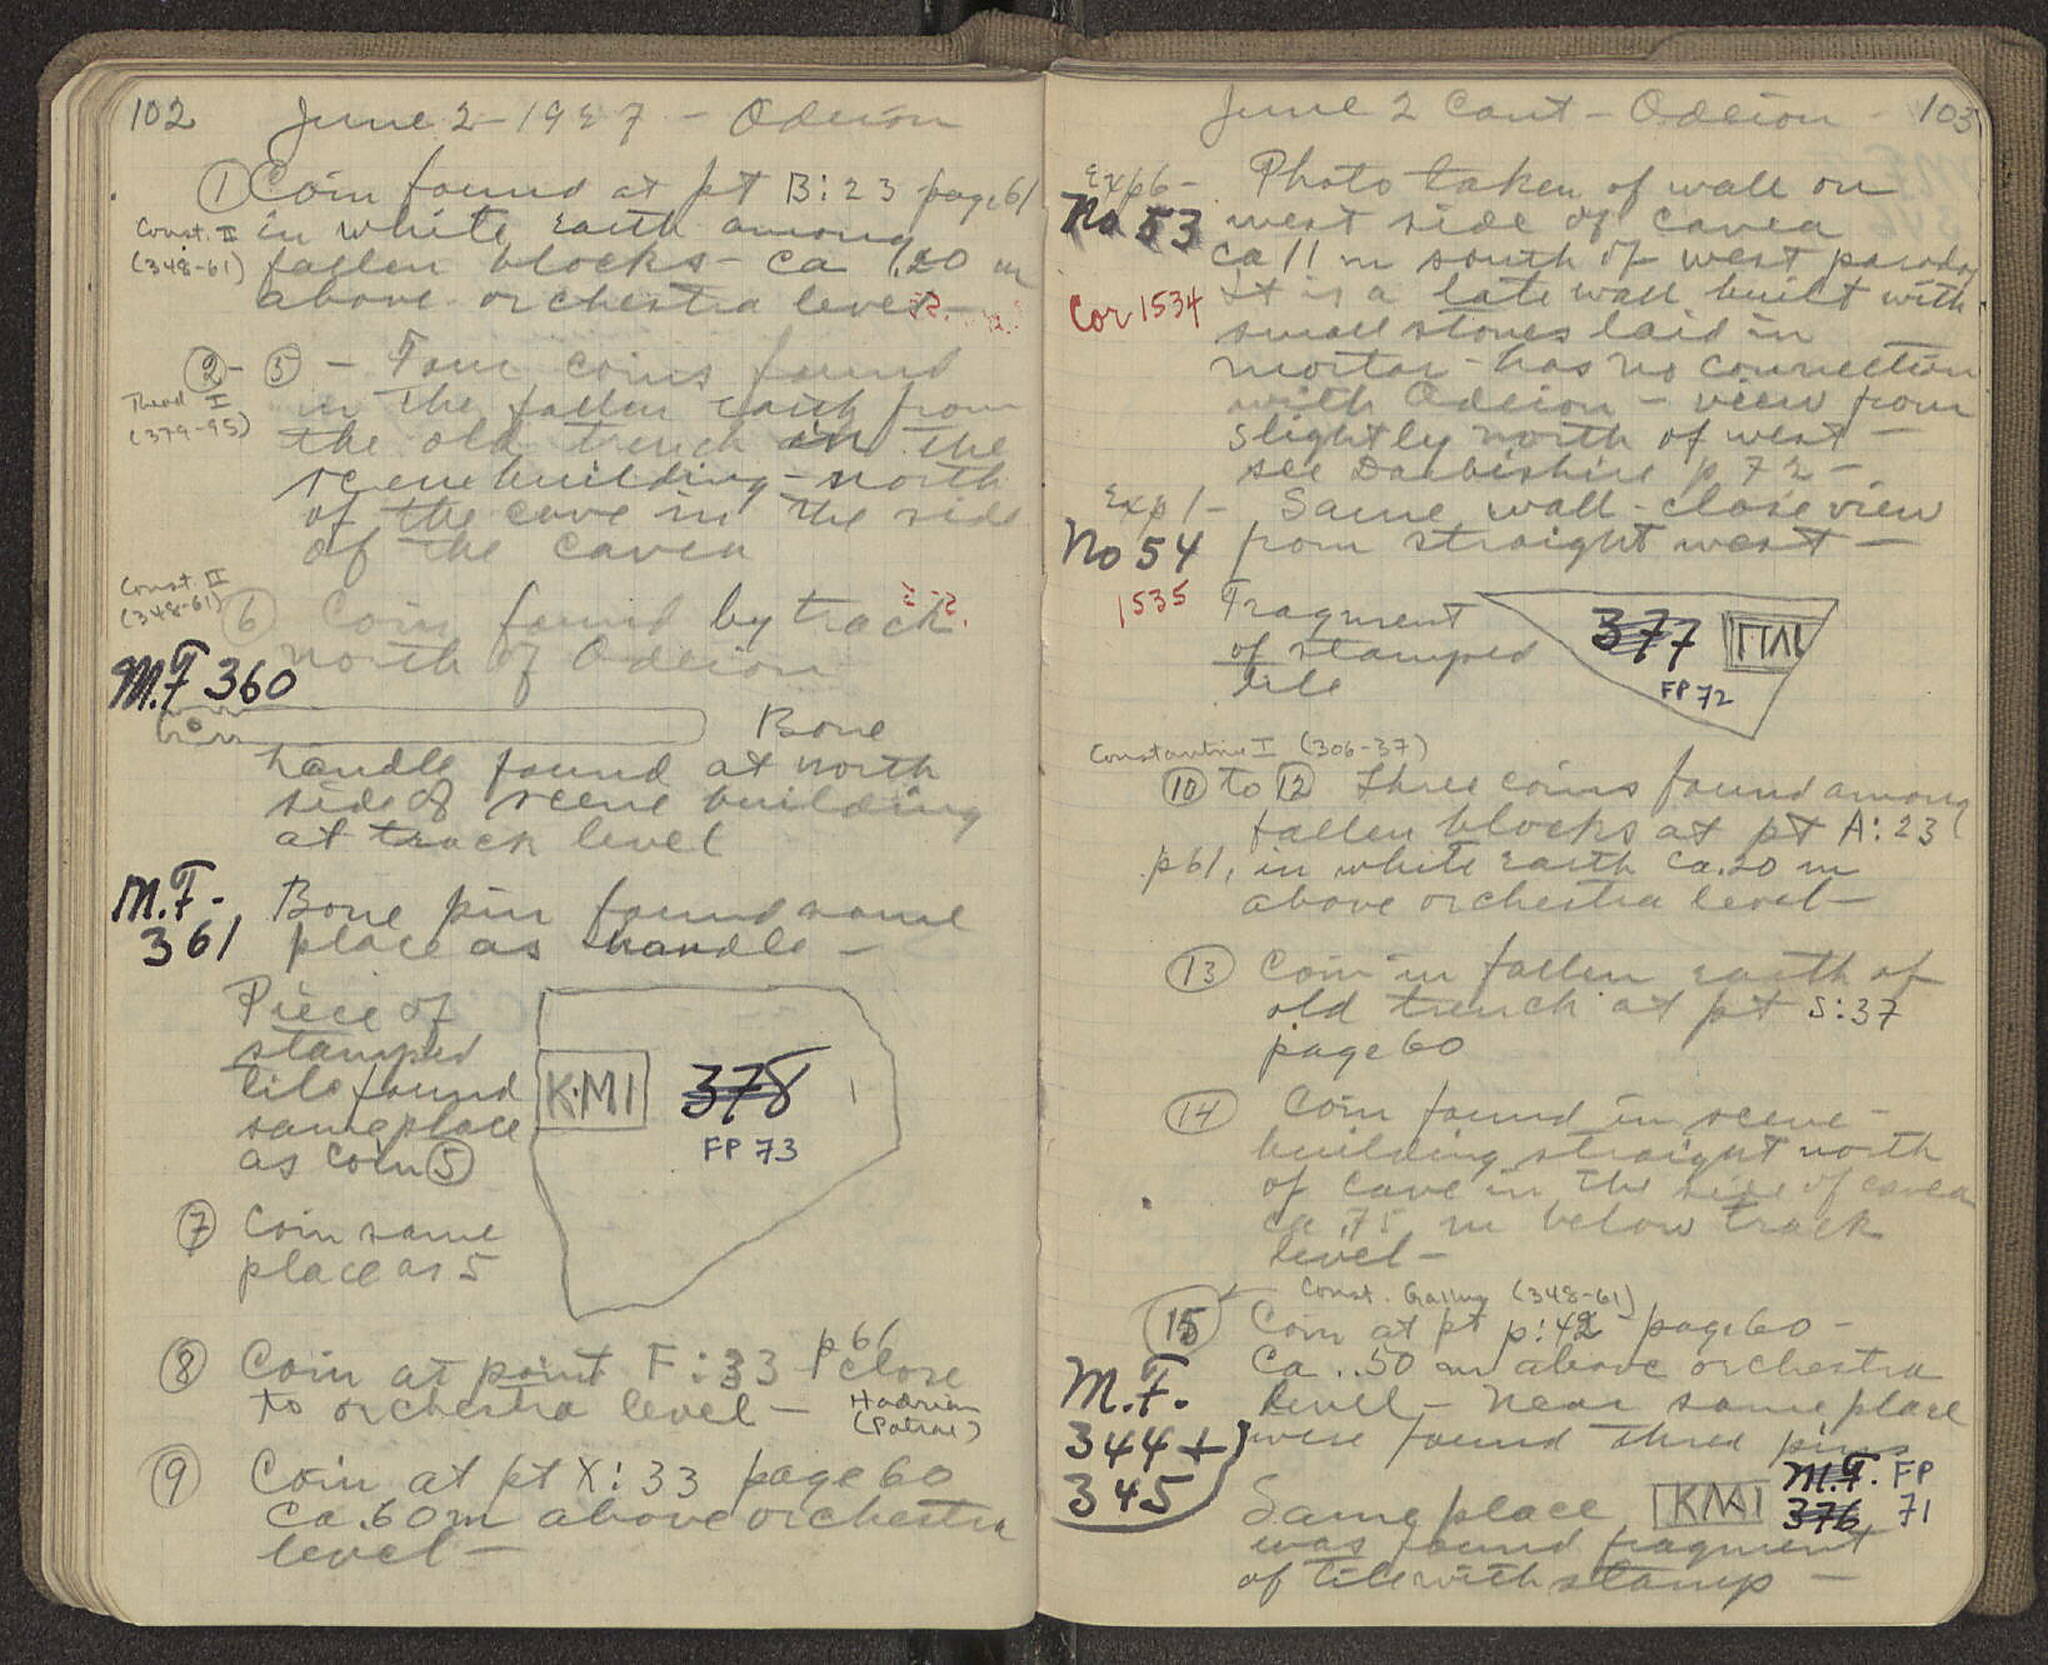 102 June 2 - 1927 - Odeion
① Coin found at pt B:23 page 61
Const. II in white earth among
(348-61) fallen blocks - ca 1.20 m
above orchestra level -
② - ⑤ - Four coins found
Theod I in the fallen earth from
(379-95) the old trench in the
scene building - north
of the cave in the side
of the cavea
Const. II
(348-61) ⑥ Coin found by track
north of Odeion
M.F 360
Bone
handle found at north
side of scene building
at track level
M.F. - Bone pin found same
361 place as handle -
Piece of
stamped
tile found K·MI 378
same place FP 73
as coin ⑤
⑦ Coin same
place as 5
⑧ Coin at point F:33 p 61 close
to orchestra level - Hadrian
(Patrae)
⑨ Coin at pt X:33 page 60
ca .60 m above orchestra
level -
June 2 Cont - Odeion - 103
Exp 6 - Photo taken of wall on
No 53 west side of cavea
ca 11 m south of west parodos
Cor 1534 It is a late wall built with
small stones laid in
mortar - has no connection
with Odeion - view from
slightly north of west -
see Darbishire p 72 -
Exp 1 - Same wall - close view
No 54 from straight west -
1535 Fragment 377
of stamped
tile FP 72
Constantine I (306-37)
⑩ to ⑫ three coins found among
fallen blocks at pt A:23
p 61, in white earth ca .20 m
above orchestra level -
⑬ Coin in fallen earth of
old trench at pt S:37
page 60
⑭ Coin found in scene -
building straight north
of cave in the side of cavea
ca .75 m below track
level -
Const. Gallus (348-61)
⑮ Coin at pt p:42 page 60 -
ca .50 m above orchestra
M.F. level - Near same place
344 + were found three pins
345 Same place KMI M.F. 376 FP 71
was found fragment
of tile with stamp -